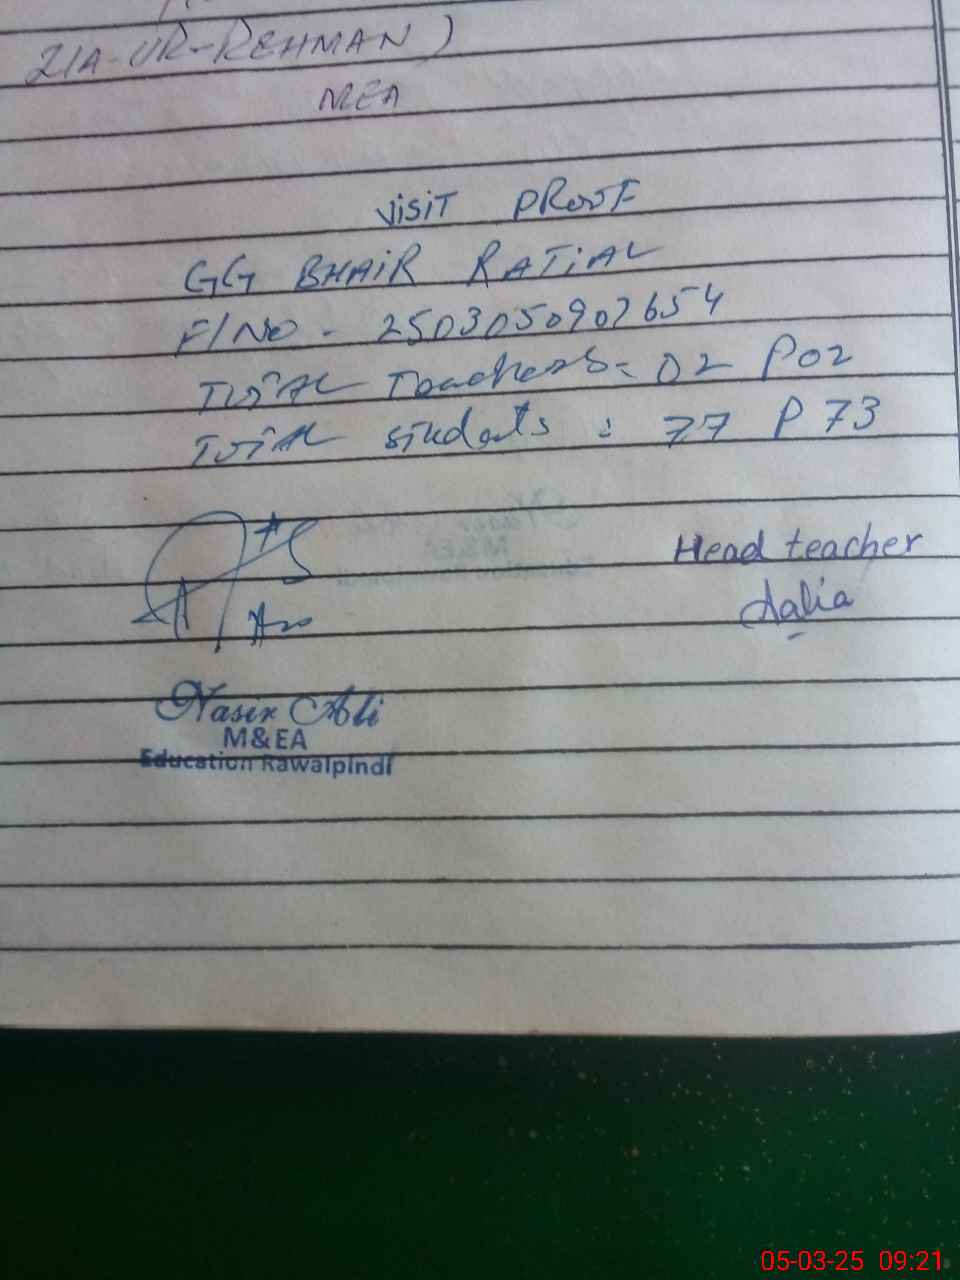 ZIA-UR-REHMAN)
MEA
VISIT PROOF
GG BHAIR RATIAL
F/NO - 2503050902654
TOTAL Teachers: 02 P02
TOTAL students : 77 P 73
Head teacher
Aalia
Nasir Ali
M&EA
Education Rawalpindi
05-03-25 09:21